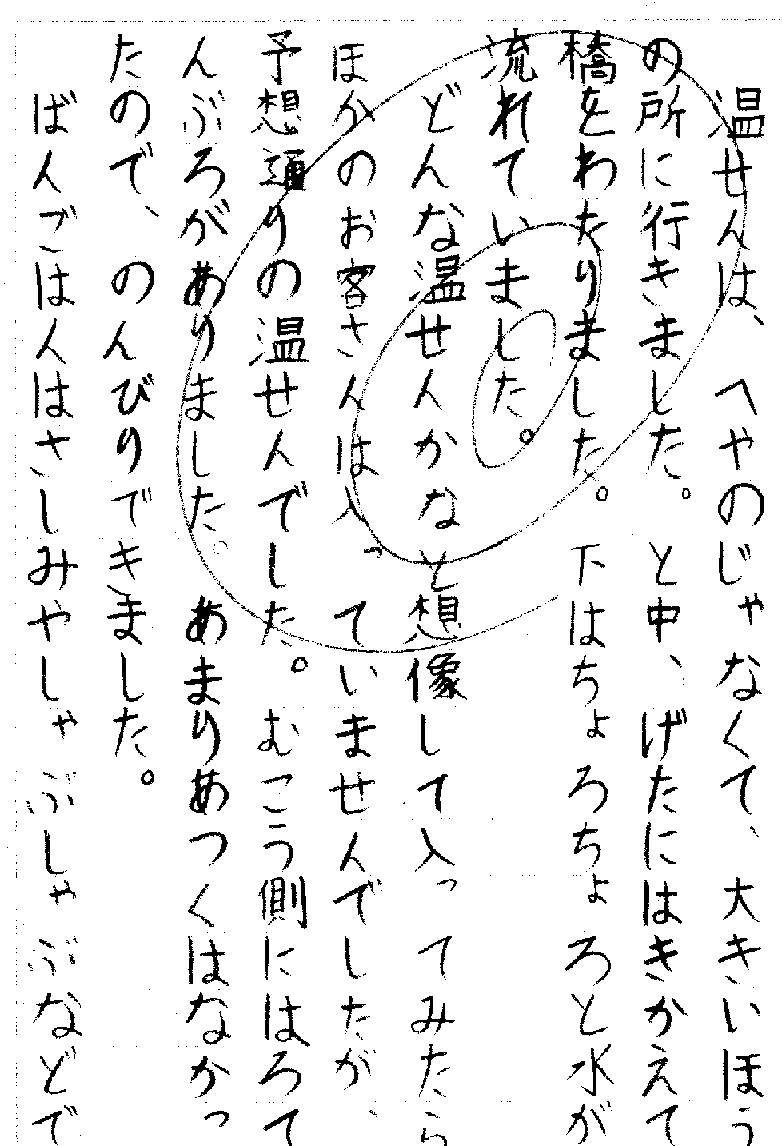 温せんは、へやのじゃなくて、大きいほう
の所に行きました。と中、げたにはきかえて
橋をわたりました。下はちょろちょろと水が
流れていました。
どんな温せんかなと想像して入ってみたら
ほかのお客さんは入っていませんでしたが、
予想通りの温せんでした。むこう側にはろて
んぶろがありました。あまりあつくはなかっ
たので、のんびりできました。
ばんごはんはさしみやしゃぶしゃぶなどで